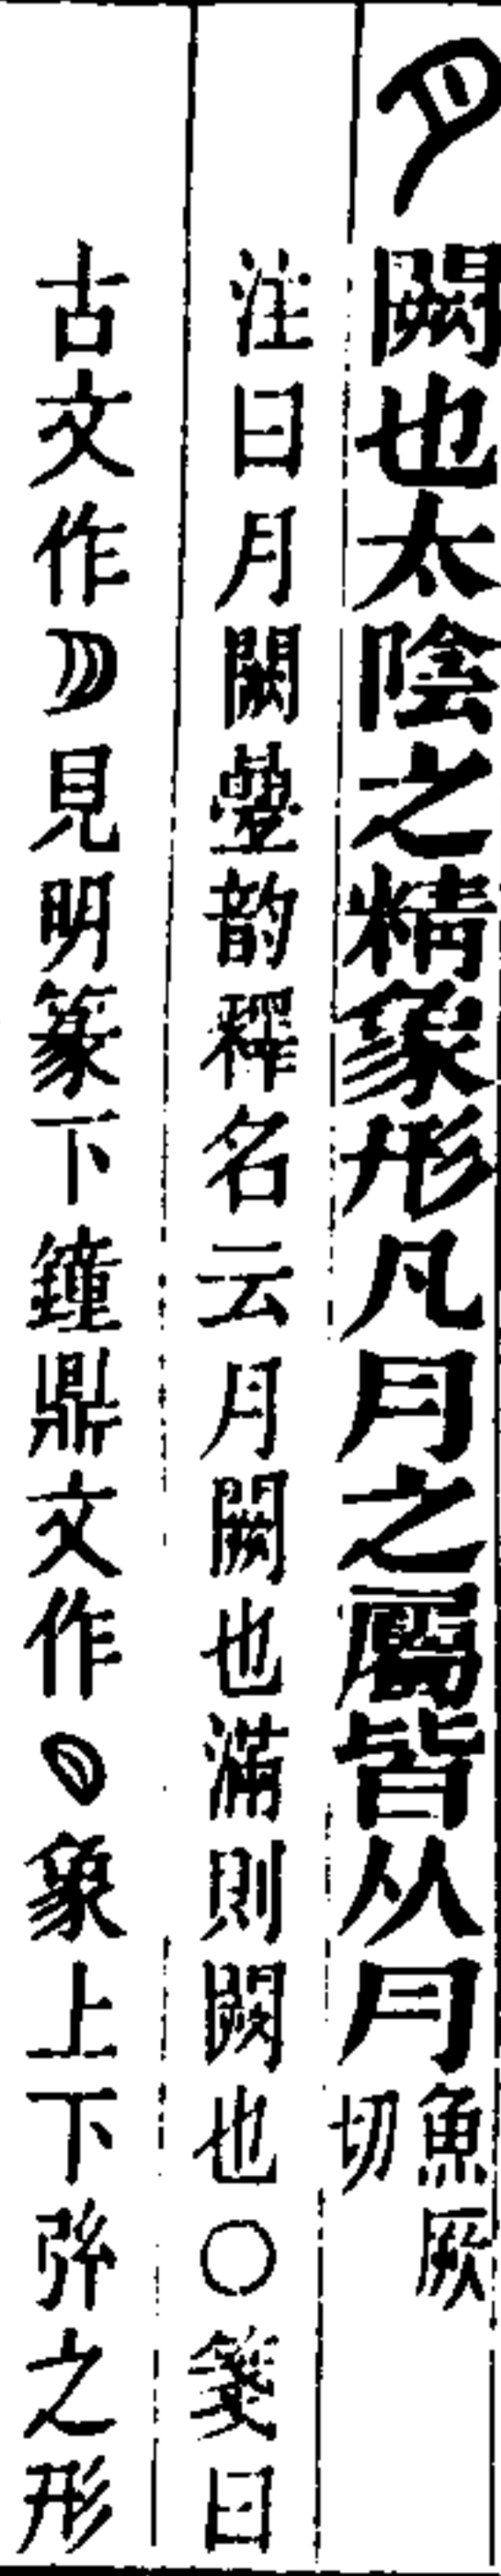 闕也太陰之精象形凡月之屬皆从月魚厥切
注曰月闕疊韵釋名云月闕也滿則闕也○箋曰
古文作見明篆下鐘鼎文作象上下弦之形